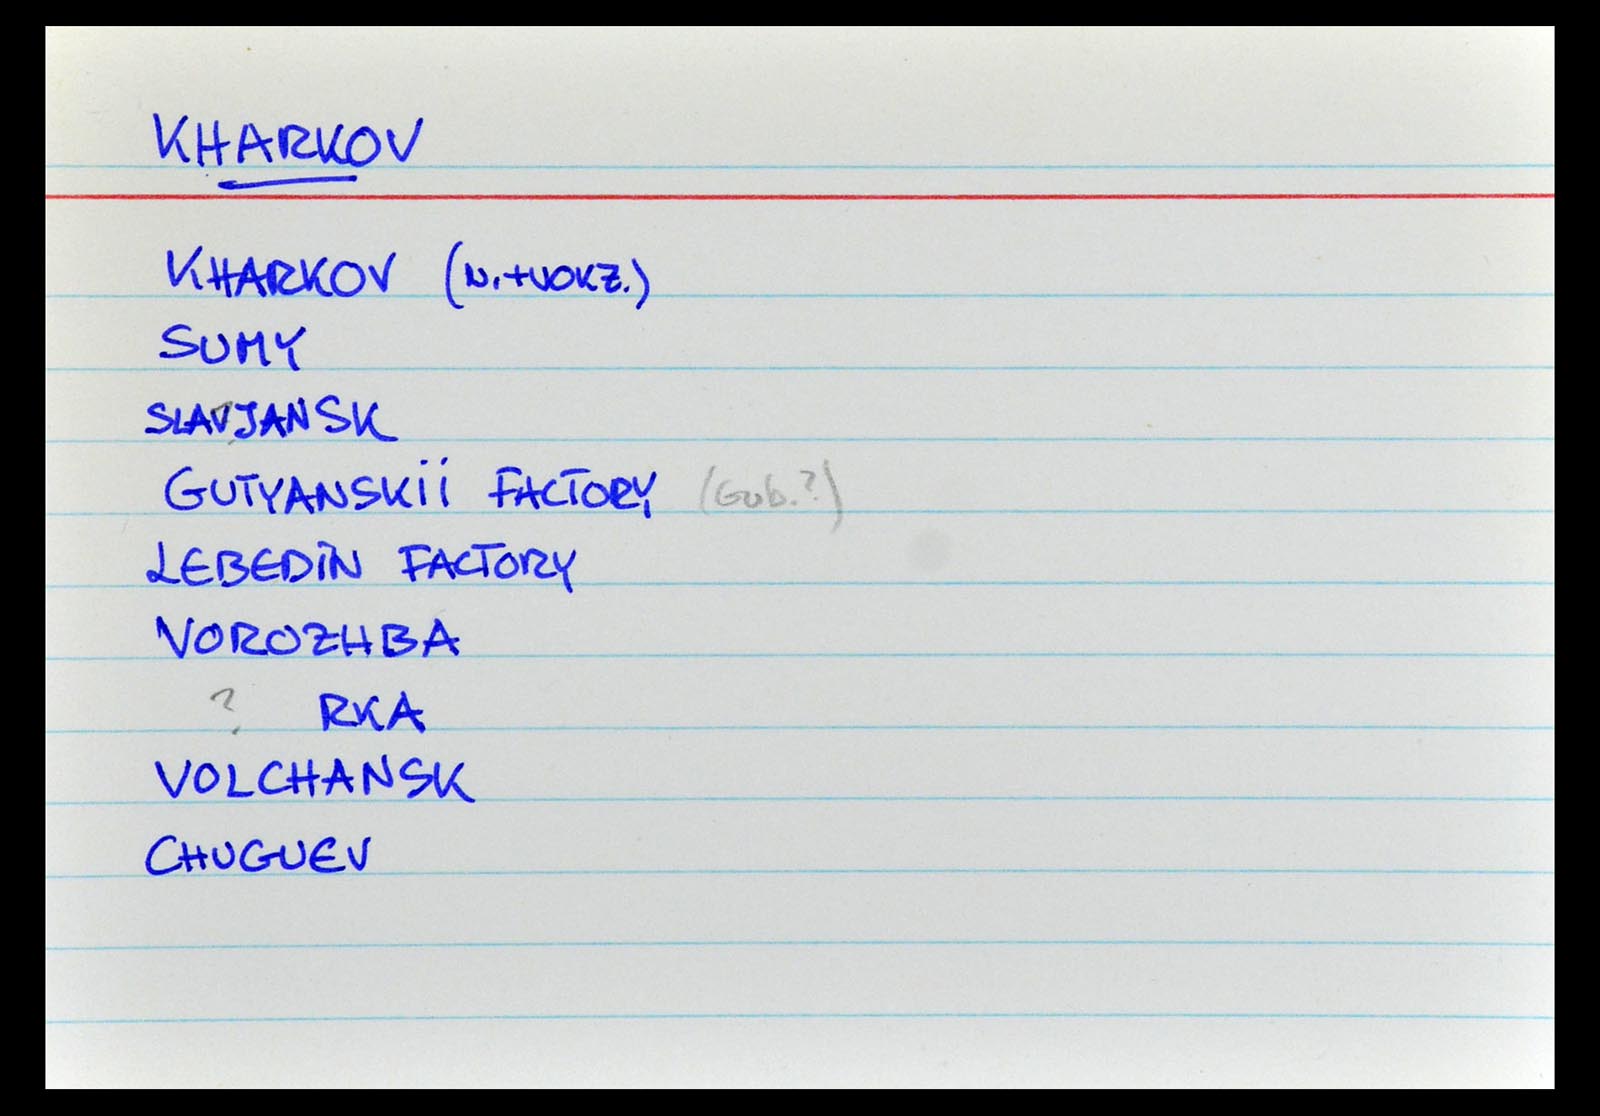 KHARKOV
KHARKOV (N.+VOKZ.)
SUMY
SLAVJANSK
GUTYANSKII FACTORY (Gub.?)
LEBEDIN FACTORY
VOROZHBA
? RKA
VOLCHANSK
CHUGUEV